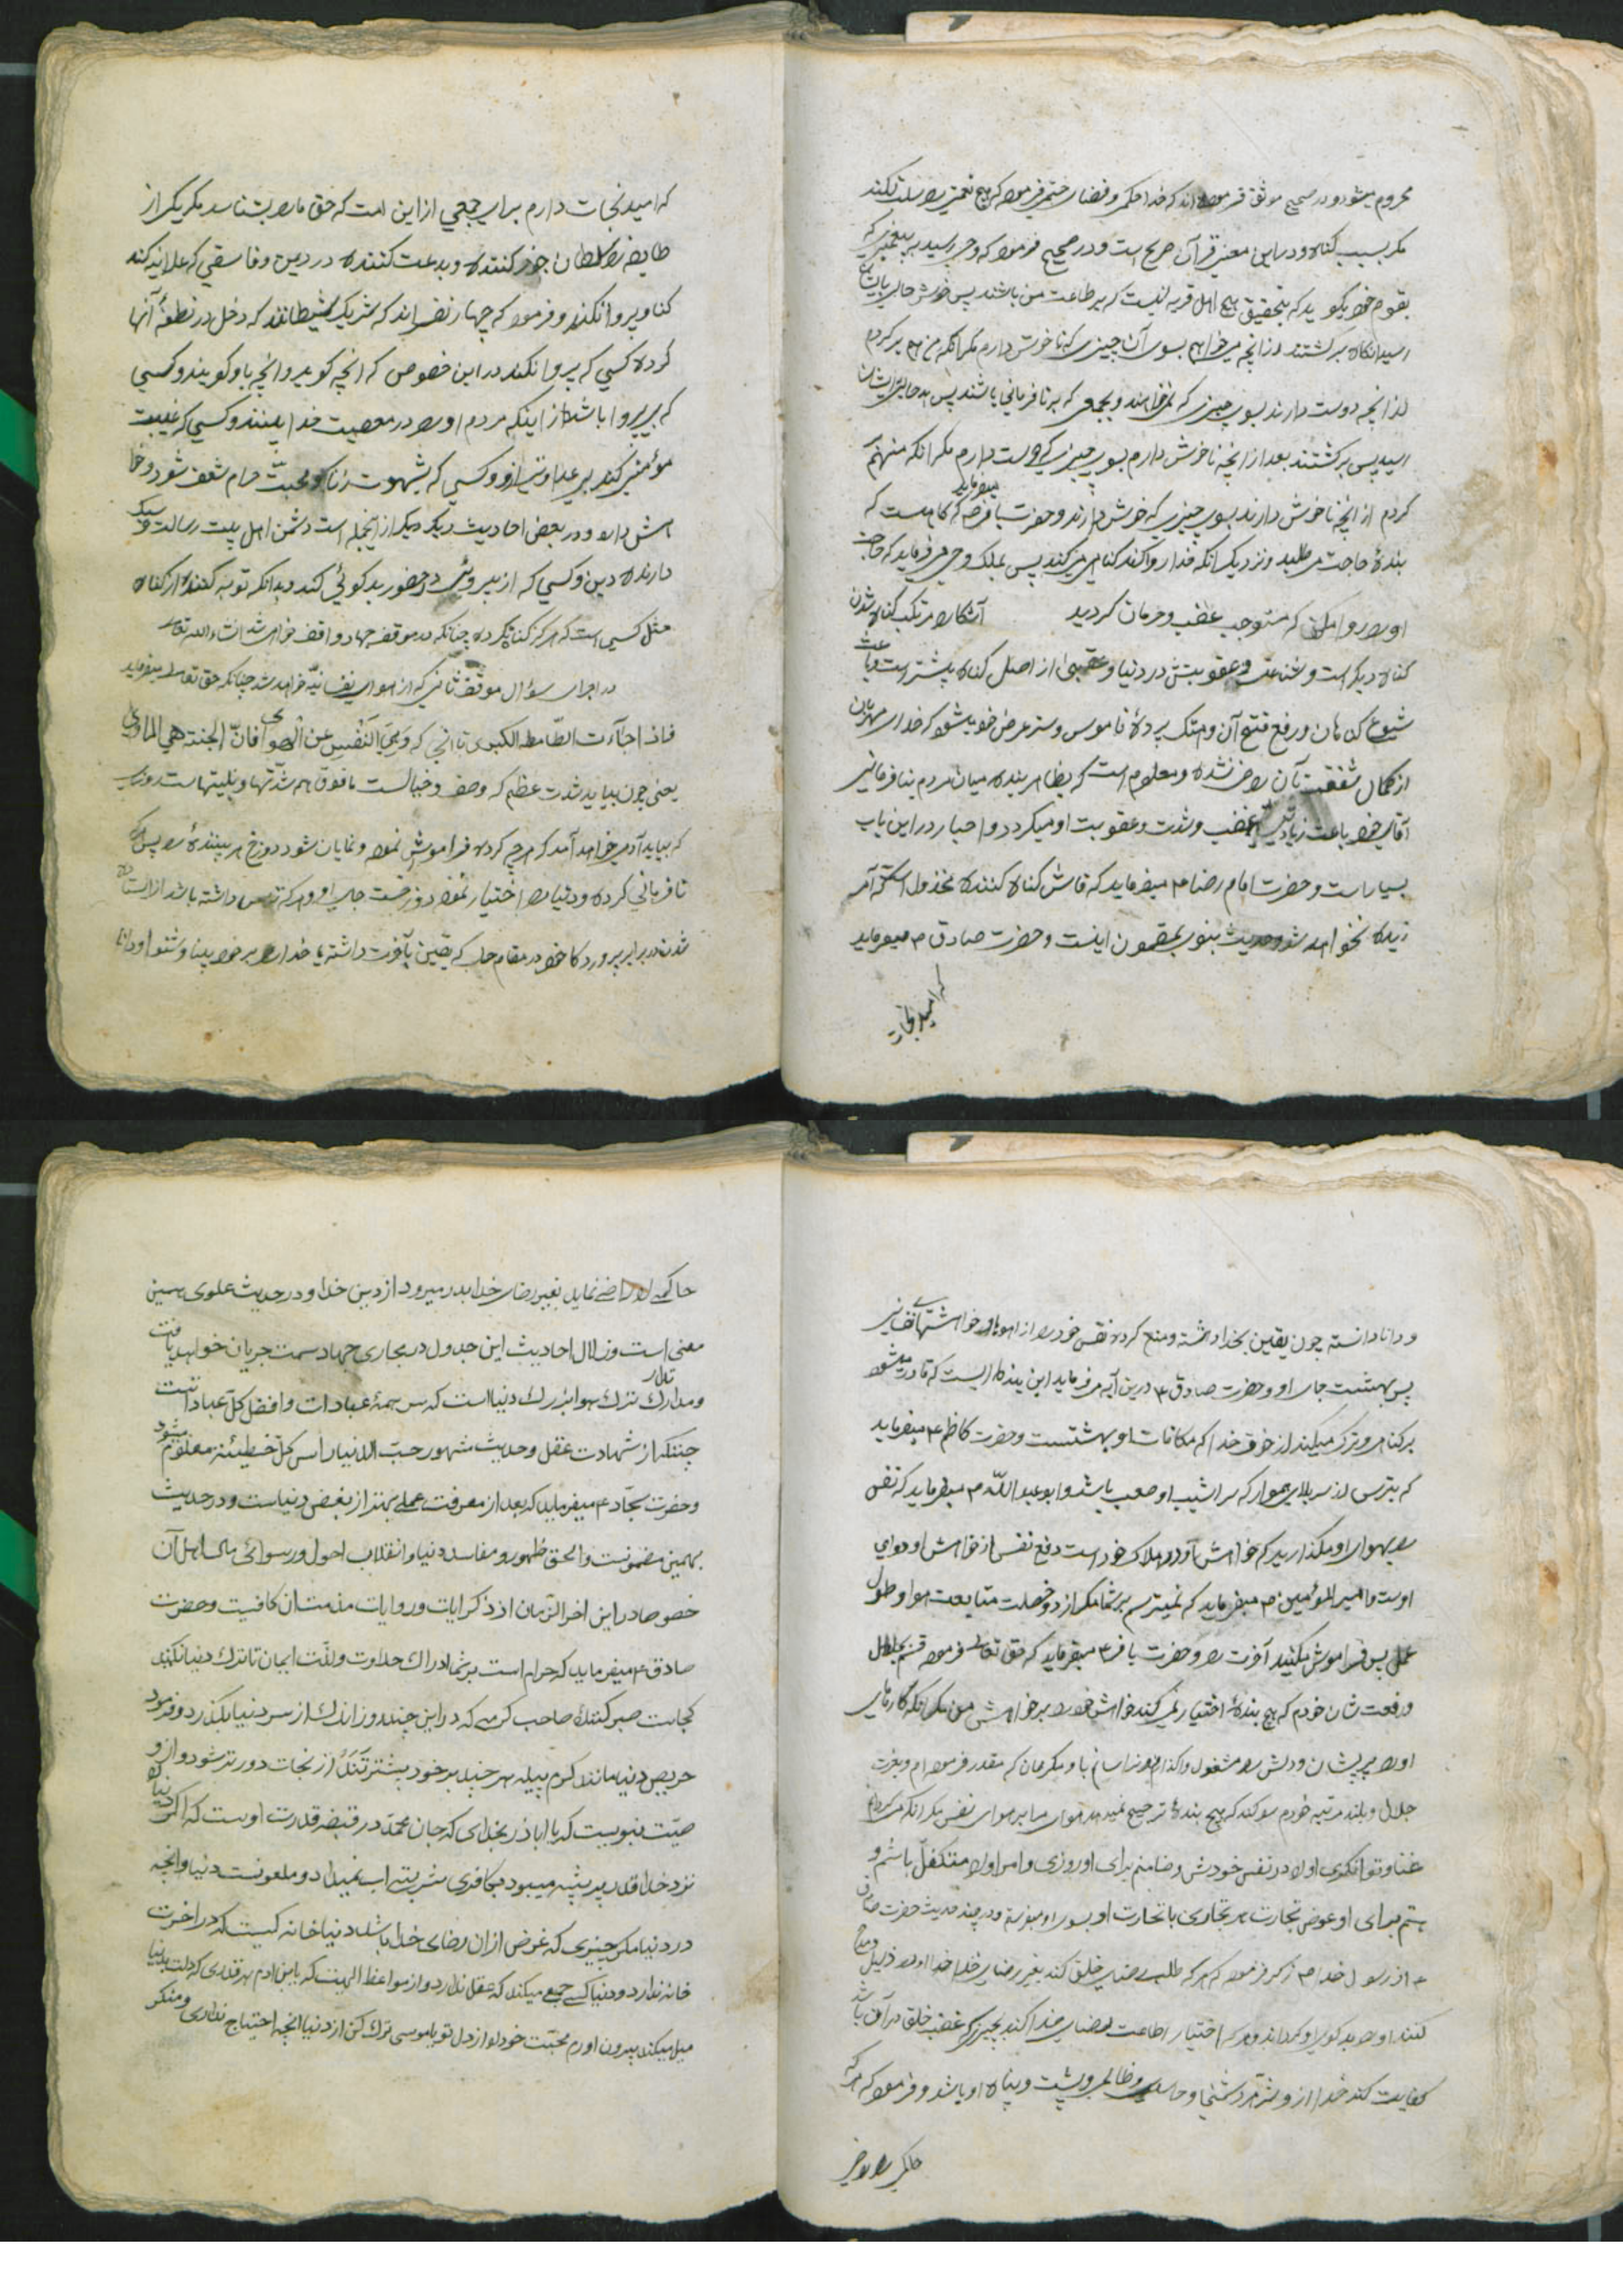 محروم میشود و در صحیح موثق فرموده اند که خدا حکم و قضای حتمی فرموده که هیچ نعمتی را سلب نکند
مگر بسبب گناه و در این معنی قرآن صریح است و در صحیح فرموده که وحی رسید به پیغمبری که
بقوم خود بگوید که بتحقیق هیچ اهل قریه نیست که بر طاعت من باشند پس خوش حالی بایشان
رسید آنگاه برگشتند از انچه میخواهم بسوی آن چیزی که ناخوش دارم مگر انکه من هم برگردم
از انچه دوست دارند بسوی چیزی که نمیخواهند و بجمعی که بر نافرمانی باشند پس بدحالی بایشان
رسید پس برگشتند بعد از انچه ناخوش دارم بسوی چیزی که دوست دارم مگر انکه منهم بر
گردم از انچه ناخوش دارند بسوی چیزی که خوش دارند و حضرت باقر میفرماید که گاه هست که
بندهٔ حاجت می طلبد و نزدیک انکه خدا روا کند گناهی میکند پس بملک وحی میفرماید که حاجت
او را روا مکن که مستوجب غضب و حرمان گردید آشکارا مرتکب گناه شدن
گناه دیگر است و شناعت و عقوبتش در دنیا و عقبی از اصل گناه بیشتر است و باعث
شیوع گناهان و رفع قبح آن و هتک پردهٔ ناموس و ستر عرض خود میشود که خدای مهربان
از کمال شفقت بآن راضی نشده و معلوم است که بظاهر بنده میان مردم بنافرمانی
آقای خود باعث زیادتی غضب و شدت و عقوبت او میگردد و اخبار در این باب
بسیار است و حضرت امام رضا ع میفرماید که فاش گناه کننده مخذول است که آمر
زیده نخواهد شد و حدیث نبوی بمضمون اینست و حضرت صادق ع میفرماید
که امید نجات
که امید نجات دارم برای جمعی از این امت که حق ما را بشناسد مگر یکی از
طایفه سلطان جور کننده و بدعت کننده در دین و فاسقی که علانیه کند
گناه و پروا نکند و فرموده که چهار نفر اند که شریک شیطانند که دخل در نطفهٔ آنها
کرده کسی که پروا نکند در این خصوص که انچه گوید و انچه باو گویند و کسی
که بی پروا باشد از اینکه مردم او را در معصیت خدا ببینند و کسی که غیبت
مؤمنی کند بی عداوتی از او و کسی که بشهوت زنا و محبت حرام شعف شود و خا
هش دارد و در بعض احادیث دیگر دیگر از انجمله است دشمن اهل بیت رسالت و سبک
دارنده دین و کسی که از بیروئی در حضور بدگوئی کند و بدانکه توبه کننده از گناه
مثل کسی است که هرگز گناه نکرده چنانکه در موقف جهاد واقف خواهی شد انشاء الله تعالی
در اجرای سؤال موقف ثانی که از هوای نفسانیه خواهد شد چنانکه حق تعالی میفرماید
فاذا جآءت الطّامة الکبری تا انجا که وَنَهَی النَّفْسَ عَنِ الْهَوی فَانّ الجنته هی الماوی
یعنی چون بیاید شدت عظیم که وصف و خیالست ما فوق همه شدّتها و بلیتهاست روزی
که بیاید آدمی خواهد آمد که هر چه کرده فراموش نموده و نمایان شود دوزخ هر بینندهٔ را پس هر که
نافرمانی کرده و دنیا را اختیار نموده دوزخست جای او و هر که ترس داشته باشد از استاده
شدن در برابر پروردگار خود در مقام حساب که یقین بآخرت داشته یا خدا را بر خود بینا و شنوا و دانا
و دانا دانسته چون یقین بخدا داشته و منع کرده نفس خود را از هواها و خواهشهای نفسانی
پس بهشتست جای او و حضرت صادق ع درین آیه میفرماید این بنده ایست که قادر میشود
بر گناهی و ترک میکند از خوف خدا که مکافات او بهشتست و حضرت کاظم ع میفرماید
که بترس از سربالای هموار که سراشیب او صعب باشد و ابو عبد اللّه ع میفرماید که نفس
را بهوای او مگذارید که خواهش او در هلاک خود است و دفع نفس از خواهش او دوای
اوست و امیر المؤمنین ع میفرماید که نمیترسم بر شما مگر از دو خصلت متابعت هوا و طول
عمل پس فراموش میکنید آخرت را و حضرت باقر ع میفرماید که حق تعالی فرموده قسم بجلال
و رفعت شان خودم که هیچ بندهٔ اختیار نمیکند خواهش خود را بر خواهش من مگر انکه کارهای
او را پریشان و دلش را مشغول واگذارم و نرسانم باو مگر همان که مقدر فرموده ام و بعزت
جلال و بلند مرتبه خودم سوگند که هیچ بندهٔ ترجیح نمیدهد هوای مرا بر هوای نفس مگر انکه میگردانم
غنا و توانگری او را در نفس خودش و ضامنم برای او روزی و امر او را متکفل باشم و
هستم برای او عوض تجارت هر تجاری با تجارت او بسوی او میفرستم و در چند حدیث حضرت صادق
ع از رسول خدا ص ذکر فرموده که هر که طلب رضای خلق کند بغیر رضای خدا خدا او را ذلیل و مداح
کننده او را بدگوی او گرداند و هر که اختیار اطاعت رضای خدا کند بچیزی که غضب خلق در آن باشد
کفایت کند خدا از او شرّ هر دشمنی و حاسدی و ظالمی و پشت و پناه او باشد و فرموده که هر که
حاکمی را راضی
حاکمی را راضی نماید بغیر رضای خدا بدر میرود از دین خدا و در حدیث علوی همین
معنی است و زلال احادیث این جدول در مجاری جهاد سمت جریان خواهد یافت
و مدارک تدارک ترک هوا بترک دنیا است که سر همهٔ عبادات و افضل کل عباداتست
چنانکه از شهادت عقل و حدیث مشهور حبّ الدنیا راس کلّ خطیئة معلوم میشود
و حضرت سجّاد ع میفرماید که بعد از معرفت عملی بهتر از بغض دنیاست و در حدیث
بهمین مضمونست و الحق ظهور و مفاسد دنیا و انقلاب احول و رسوائی مال اهل آن
خصوصا در این اخر الزّمان از ذکر ایات و روایات مذمتشان کافیست و حضرت
صادق ع میفرماید که حرام است بر شما ادراک حلاوت و لذّت ایمان تا ترک دنیا نکنید
کجاست صبر کننده صاحب کرمی که در این چند روز اندک از سر دنیا بگذرد و فرمود
حریص دنیا مانند کرم پیله هر چند بر خود بیشتر تَنَدْ از نجات دورتر شود و از و
صیّت نبویست که یا اباذر بخدای که جان محمّد در قبضه قدرت اوست که اگر دنیا را
نزد خدا قدر پر پشه میبود بکافری شربتی اب نمیداد و ملعونست دنیا و انچه
در دنیا مگر چیزی که غرض از ان رضای خدا باشد دنیا خانه کیست که در اخرت
خانه ندارد و دنیا کسی جمع میکند که عقل ندارد و از مواعظ الهیست که یا بن ادم بهر قدری که دلت بدنیا
میل میکند بیرون اورم محبّت خود را از دل تو یا موسی ترک کن از دنیا انچه احتیاج نداری و منگر